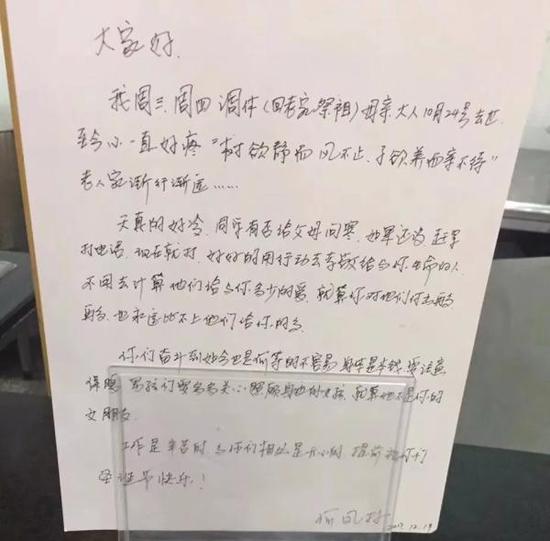 大家好.
我周三、周四调休(回老家祭祖)母亲大人10月24号去世
至今心一直好疼"树欲静而风不止、子欲养而亲不待"
老人家渐行渐远……
天真的好冷、同学有否给父母问寒、如果还没 赶紧
打电话、现在就打、好好的用行动去孝敬给与你生命的人
不用去计算他们给与你多少的爱、就算你对他们付出再多
再多、也永远比不上他们给你的多
你们奋斗到如今也是何等的不容易 身体是本钱 要注意
保暖 男孩们要多多关心照顾身边的女孩、就算她不是你的
女朋友
工作是辛苦的 与你们相处是开心的 提前祝你们
圣诞节快乐!
2017.12.19